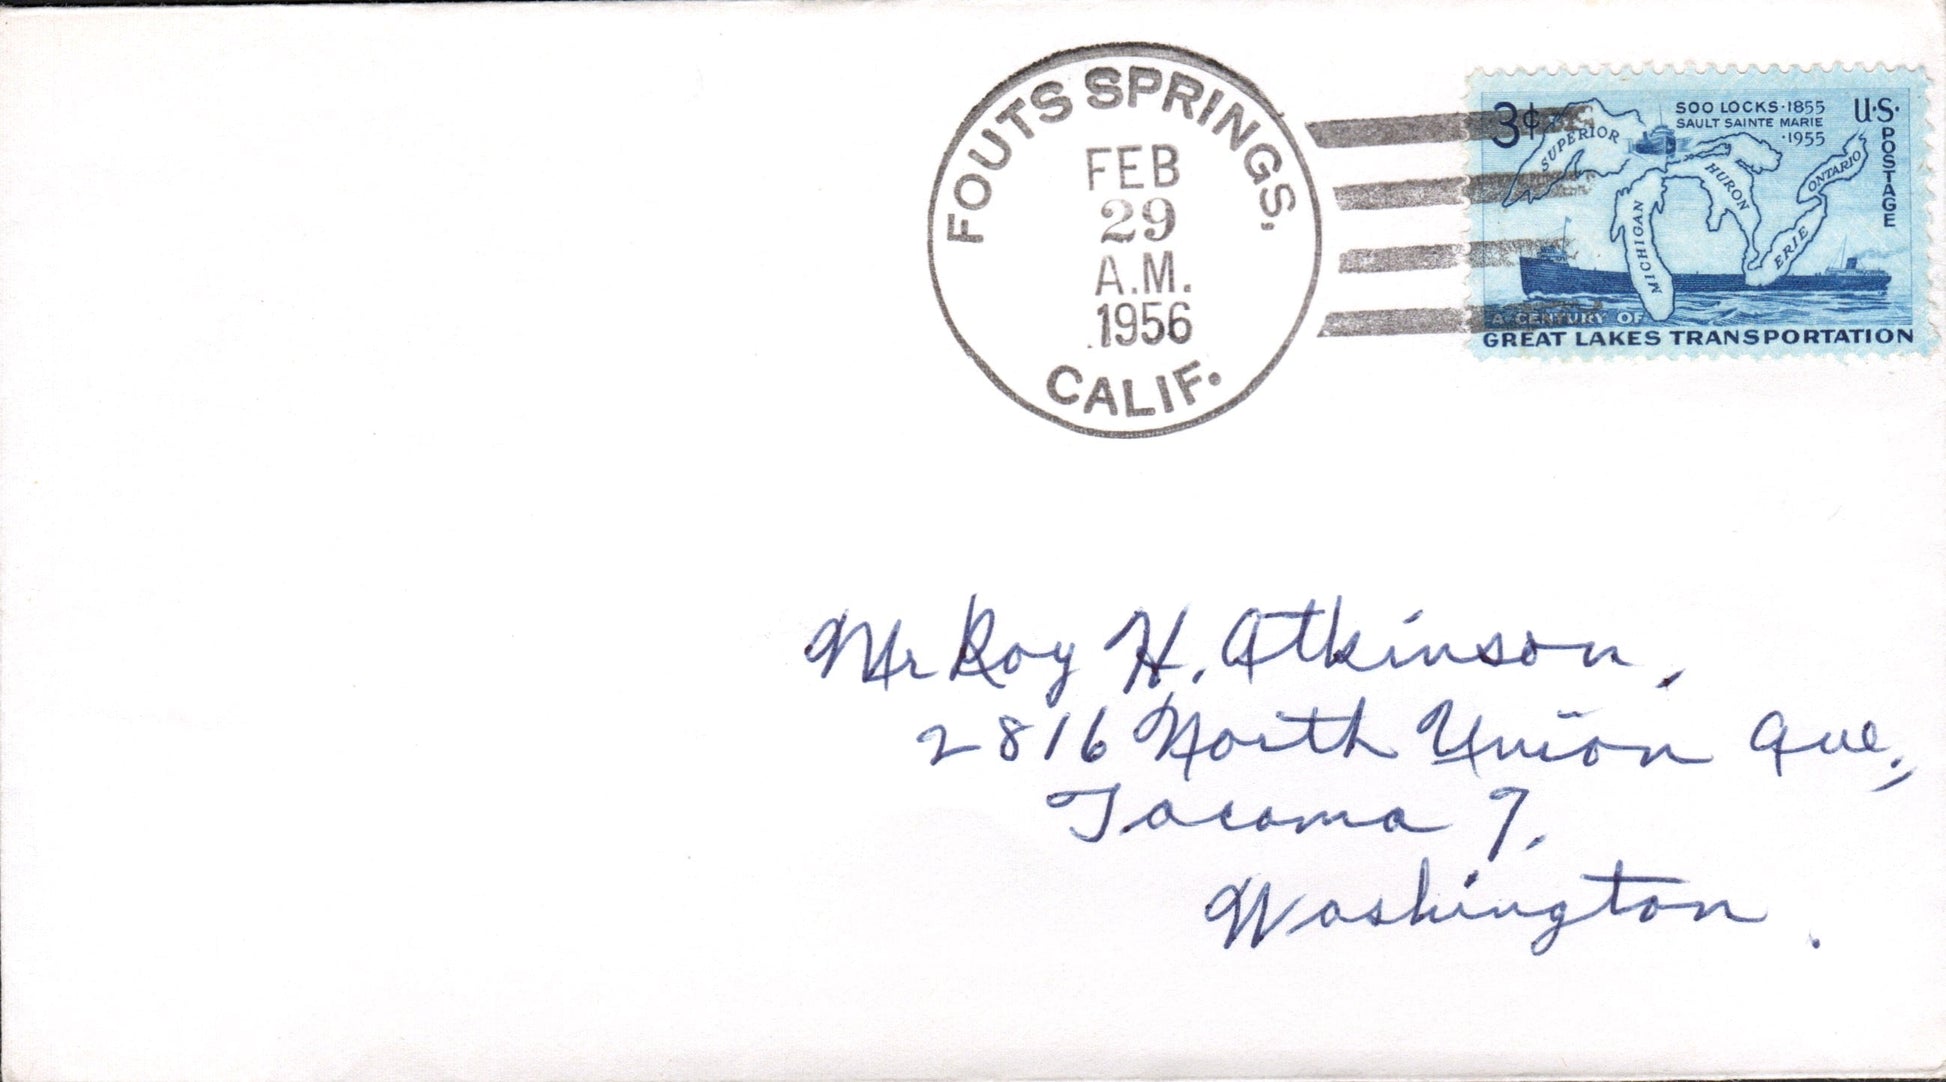 FOUTS SPRINGS,
FEB
29
A.M.
1956
CALIF.
3¢
SOO LOCKS·1855
SAULT SAINTE MARIE
·1955
U·S·
POSTAGE
SUPERIOR
MICHIGAN
HURON
ERIE
ONTARIO
A CENTURY OF
GREAT LAKES TRANSPORTATION
Mr Roy H. Atkinson,
2816 North Union Ave.,
Tacoma 7,
Washington.